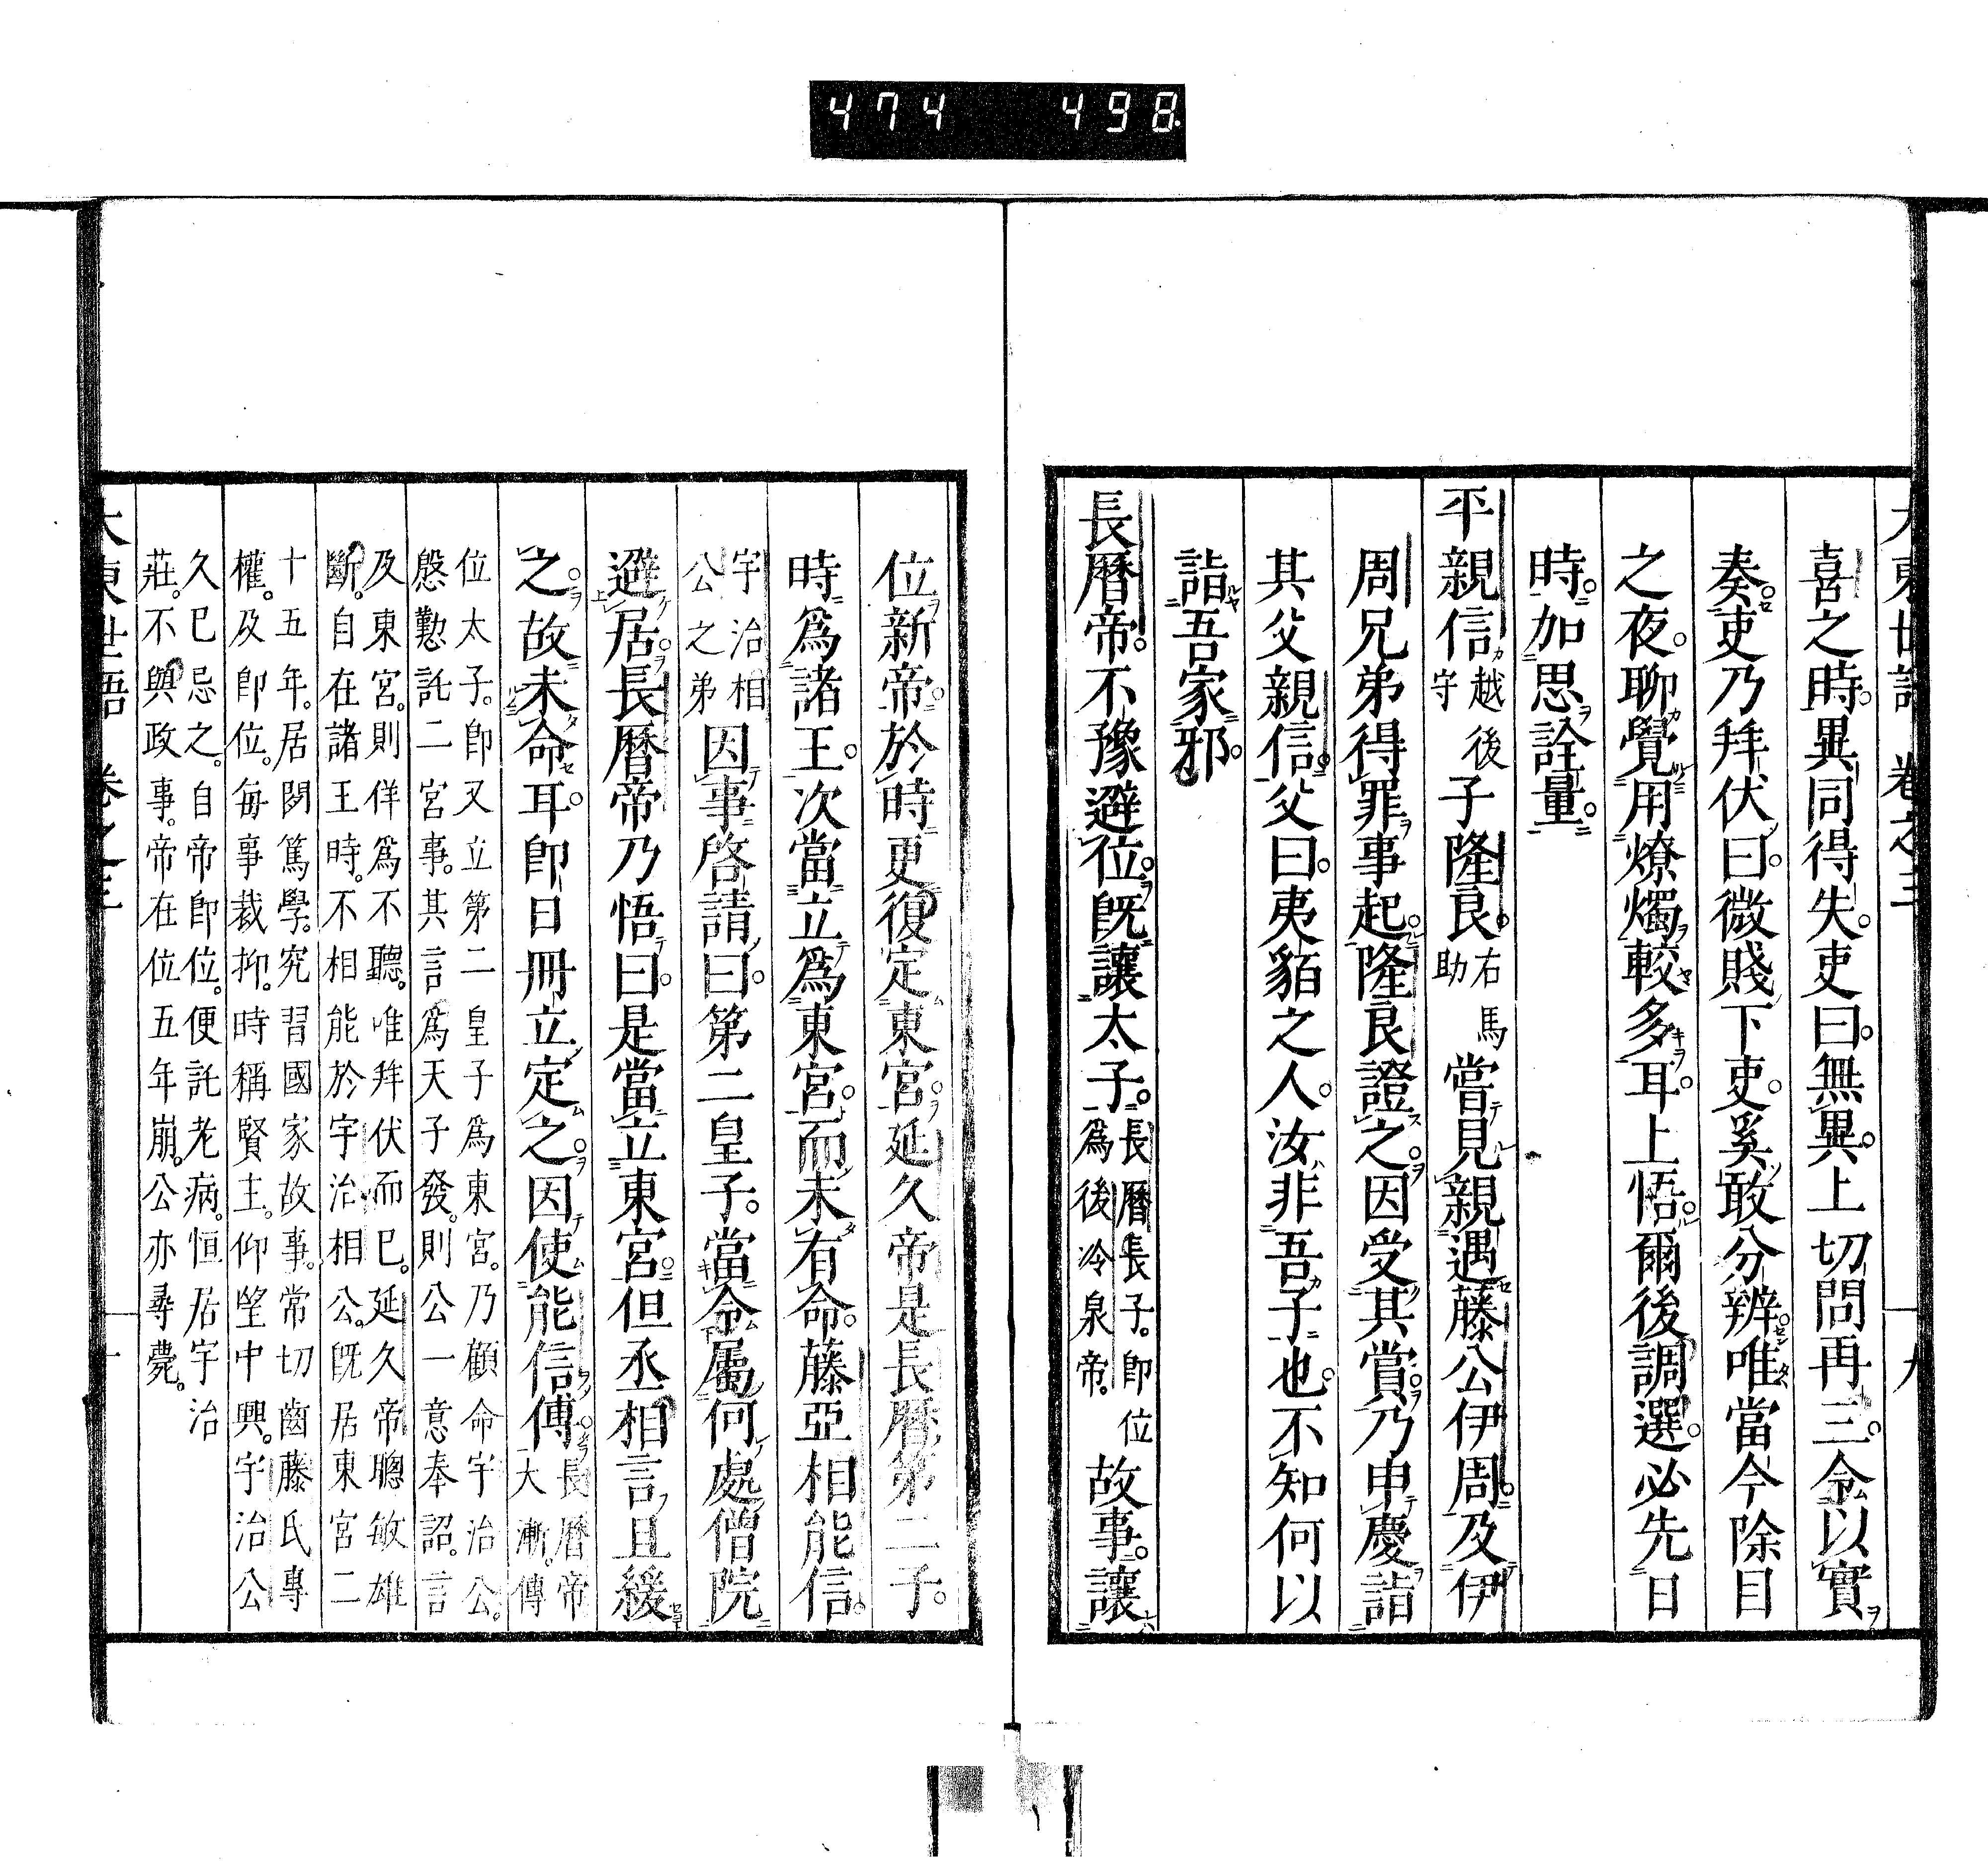 474 498
大東世語 卷之三 九
喜之時。異同得失。吏曰。無異。上切問再三。令以實
奏。吏乃拜伏曰。微賤下吏。奚敢分辨。唯當今除目
之夜。聊覺用燎燭較多耳。上悟。爾後調選。必先日
時。加思詮量。
平親信越後守子隆良。右馬助嘗見親遇藤公伊周。及伊
周兄弟得罪事起。隆良證之。因受其賞。乃申慶詣
其父親信。父曰。夷貊之人。汝非吾子也。不知何以
詣吾家邪。
長曆帝。不豫避位。既讓太子。長曆長子。即位爲後冷泉帝。故事。讓
位新帝。於時更復定東宮。延久帝是長曆第二子。
時爲諸王。次當立爲東宮。而未有命。藤亞相能信。
宇治相公之弟因事啓請曰。第二皇子。當令屬何處僧院
避居。長曆帝乃悟曰。是當立東宮。但丞相言且緩
之。故未命耳。即日冊立定之。因使能信傅。長曆帝大漸。傳
位太子。即又立第二皇子爲東宮。乃顧命宇治公。
慇懃託二宮事。其言爲天子發。則公一意奉詔。言
及東宮。則佯爲不聽。唯拜伏而已。延久帝聰敏雄
斷。自在諸王時。不相能於宇治相公。既居東宮二
十五年。居閑篤學。究習國家故事。常切齒藤氏專
權。及即位。每事裁抑。時稱賢主。仰望中興。宇治公
久已忌之。自帝即位。便託老病。恒居宇治
莊。不與政事。帝在位五年崩。公亦尋薨。
大東世語 卷之三 十